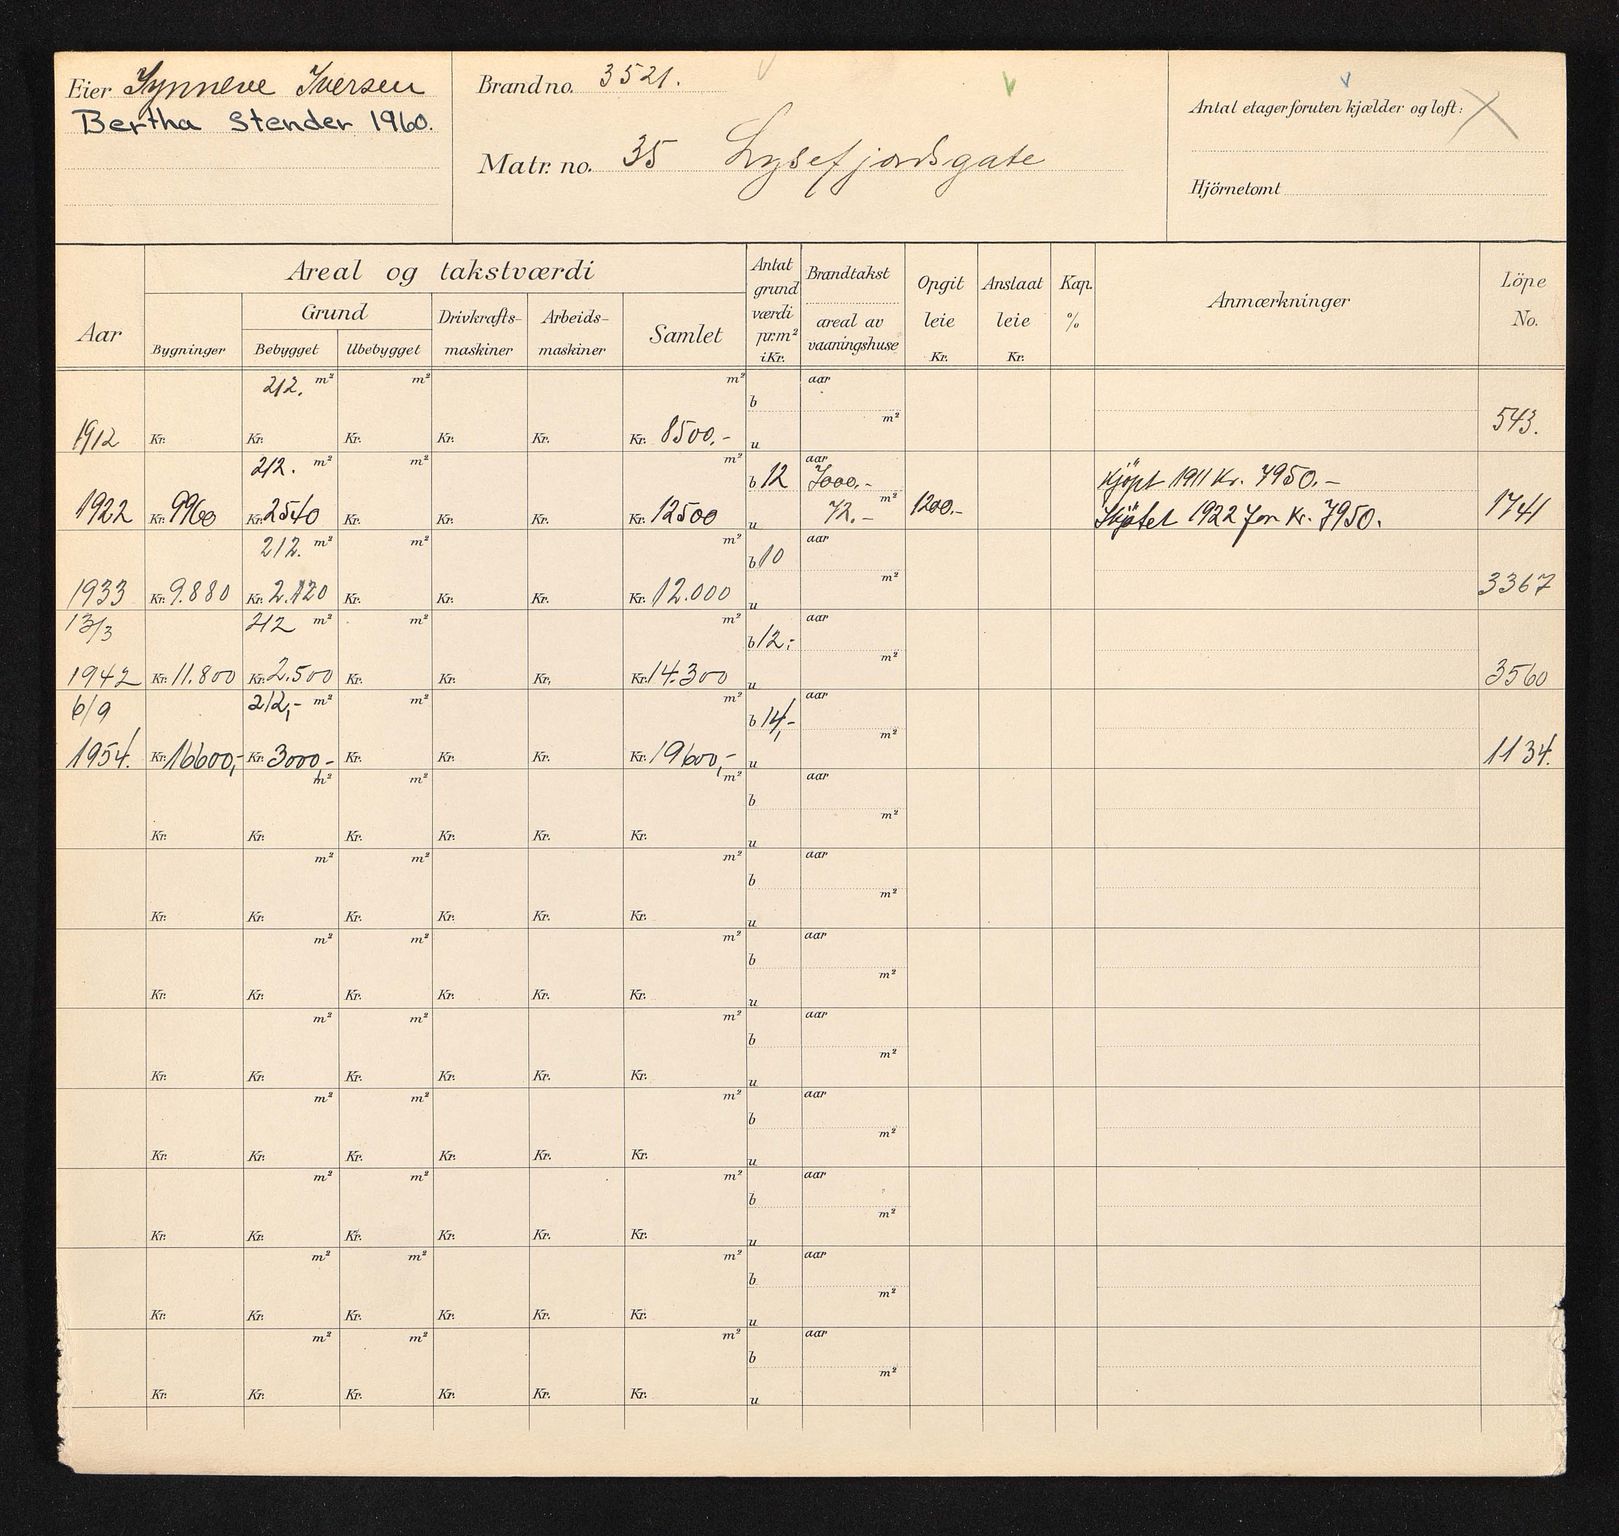 Eier Synneve Iversen
Bertha Stender 1960.
Brand no. 3521.
Matr. no. 35 Lysefjordsgate
Antal etager foruten kjælder og loft:
Hjörnetomt
Aar
Areal og takstværdi
Bygninger
Grund
Bebygget Ubebygget
Drivkrafts-
maskiner
Arbeids-
maskiner
Samlet
Antat
grund
værdi
pr. m²
i Kr.
Brandtakst
areal av
vaaningshuse
Opgit
leie
Kr.
Anslaat
leie
Kr.
Kap.
%
Anmærkninger
Löpe
No.
212. m² m² m² aar
b m²
1912 Kr. Kr. Kr. Kr. Kr. Kr. 8500,- u 543.
212. m² m² m² b 12 aar 7000,- Kjøpt 1911 Kr. 7950.-
1922 Kr. 9960 Kr. 2540 Kr. Kr. Kr. Kr. 12500 u 72.- m² 1200.- Skjøtet 1922 for Kr. 7950. 1741
212. m² m² m² b 10 aar
m²
1933 Kr. 9.880 Kr. 2.120 Kr. Kr. Kr. Kr. 12.000 u 3367
13/3 212 m² m² m² b 12,- aar
m²
1942 Kr. 11.800 Kr. 2.500 Kr. Kr. Kr. Kr. 14.300 u 3560
6/9 212,- m² m² m² b 14,- aar
m²
1954. Kr. 16600,- Kr. 3000- Kr. Kr. Kr. Kr. 19600,- u 1134.
m² m² m² aar
b m²
Kr. Kr. Kr. Kr. Kr. Kr. u
m² m² m² aar
b m²
Kr. Kr. Kr. Kr. Kr. Kr. u
m² m² m² aar
b m²
Kr. Kr. Kr. Kr. Kr. Kr. u
m² m² m² aar
b m²
Kr. Kr. Kr. Kr. Kr. Kr. u
m² m² m² aar
b m²
Kr. Kr. Kr. Kr. Kr. Kr. u
m² m² m² aar
b m²
Kr. Kr. Kr. Kr. Kr. Kr. u
m² m² m² aar
b m²
Kr. Kr. Kr. Kr. Kr. Kr. u
m² m² m² aar
b m²
Kr. Kr. Kr. Kr. Kr. Kr. u